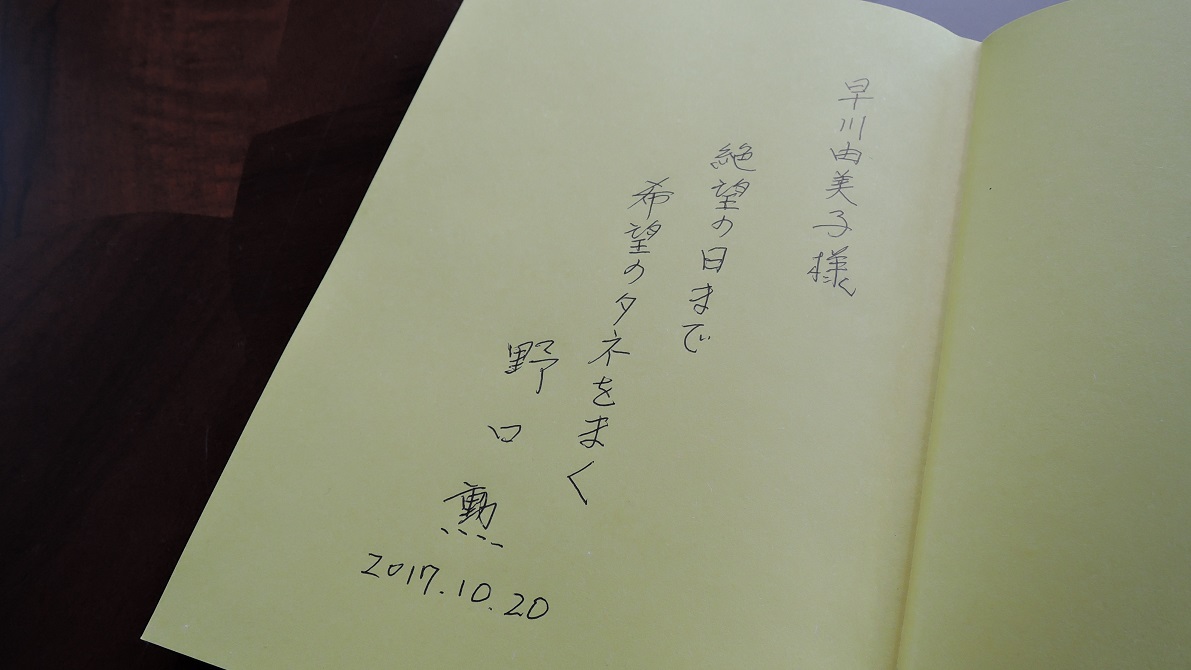 早川由美子様
絶望の日まで
希望のタネをまく
野口勲
2017.10.20